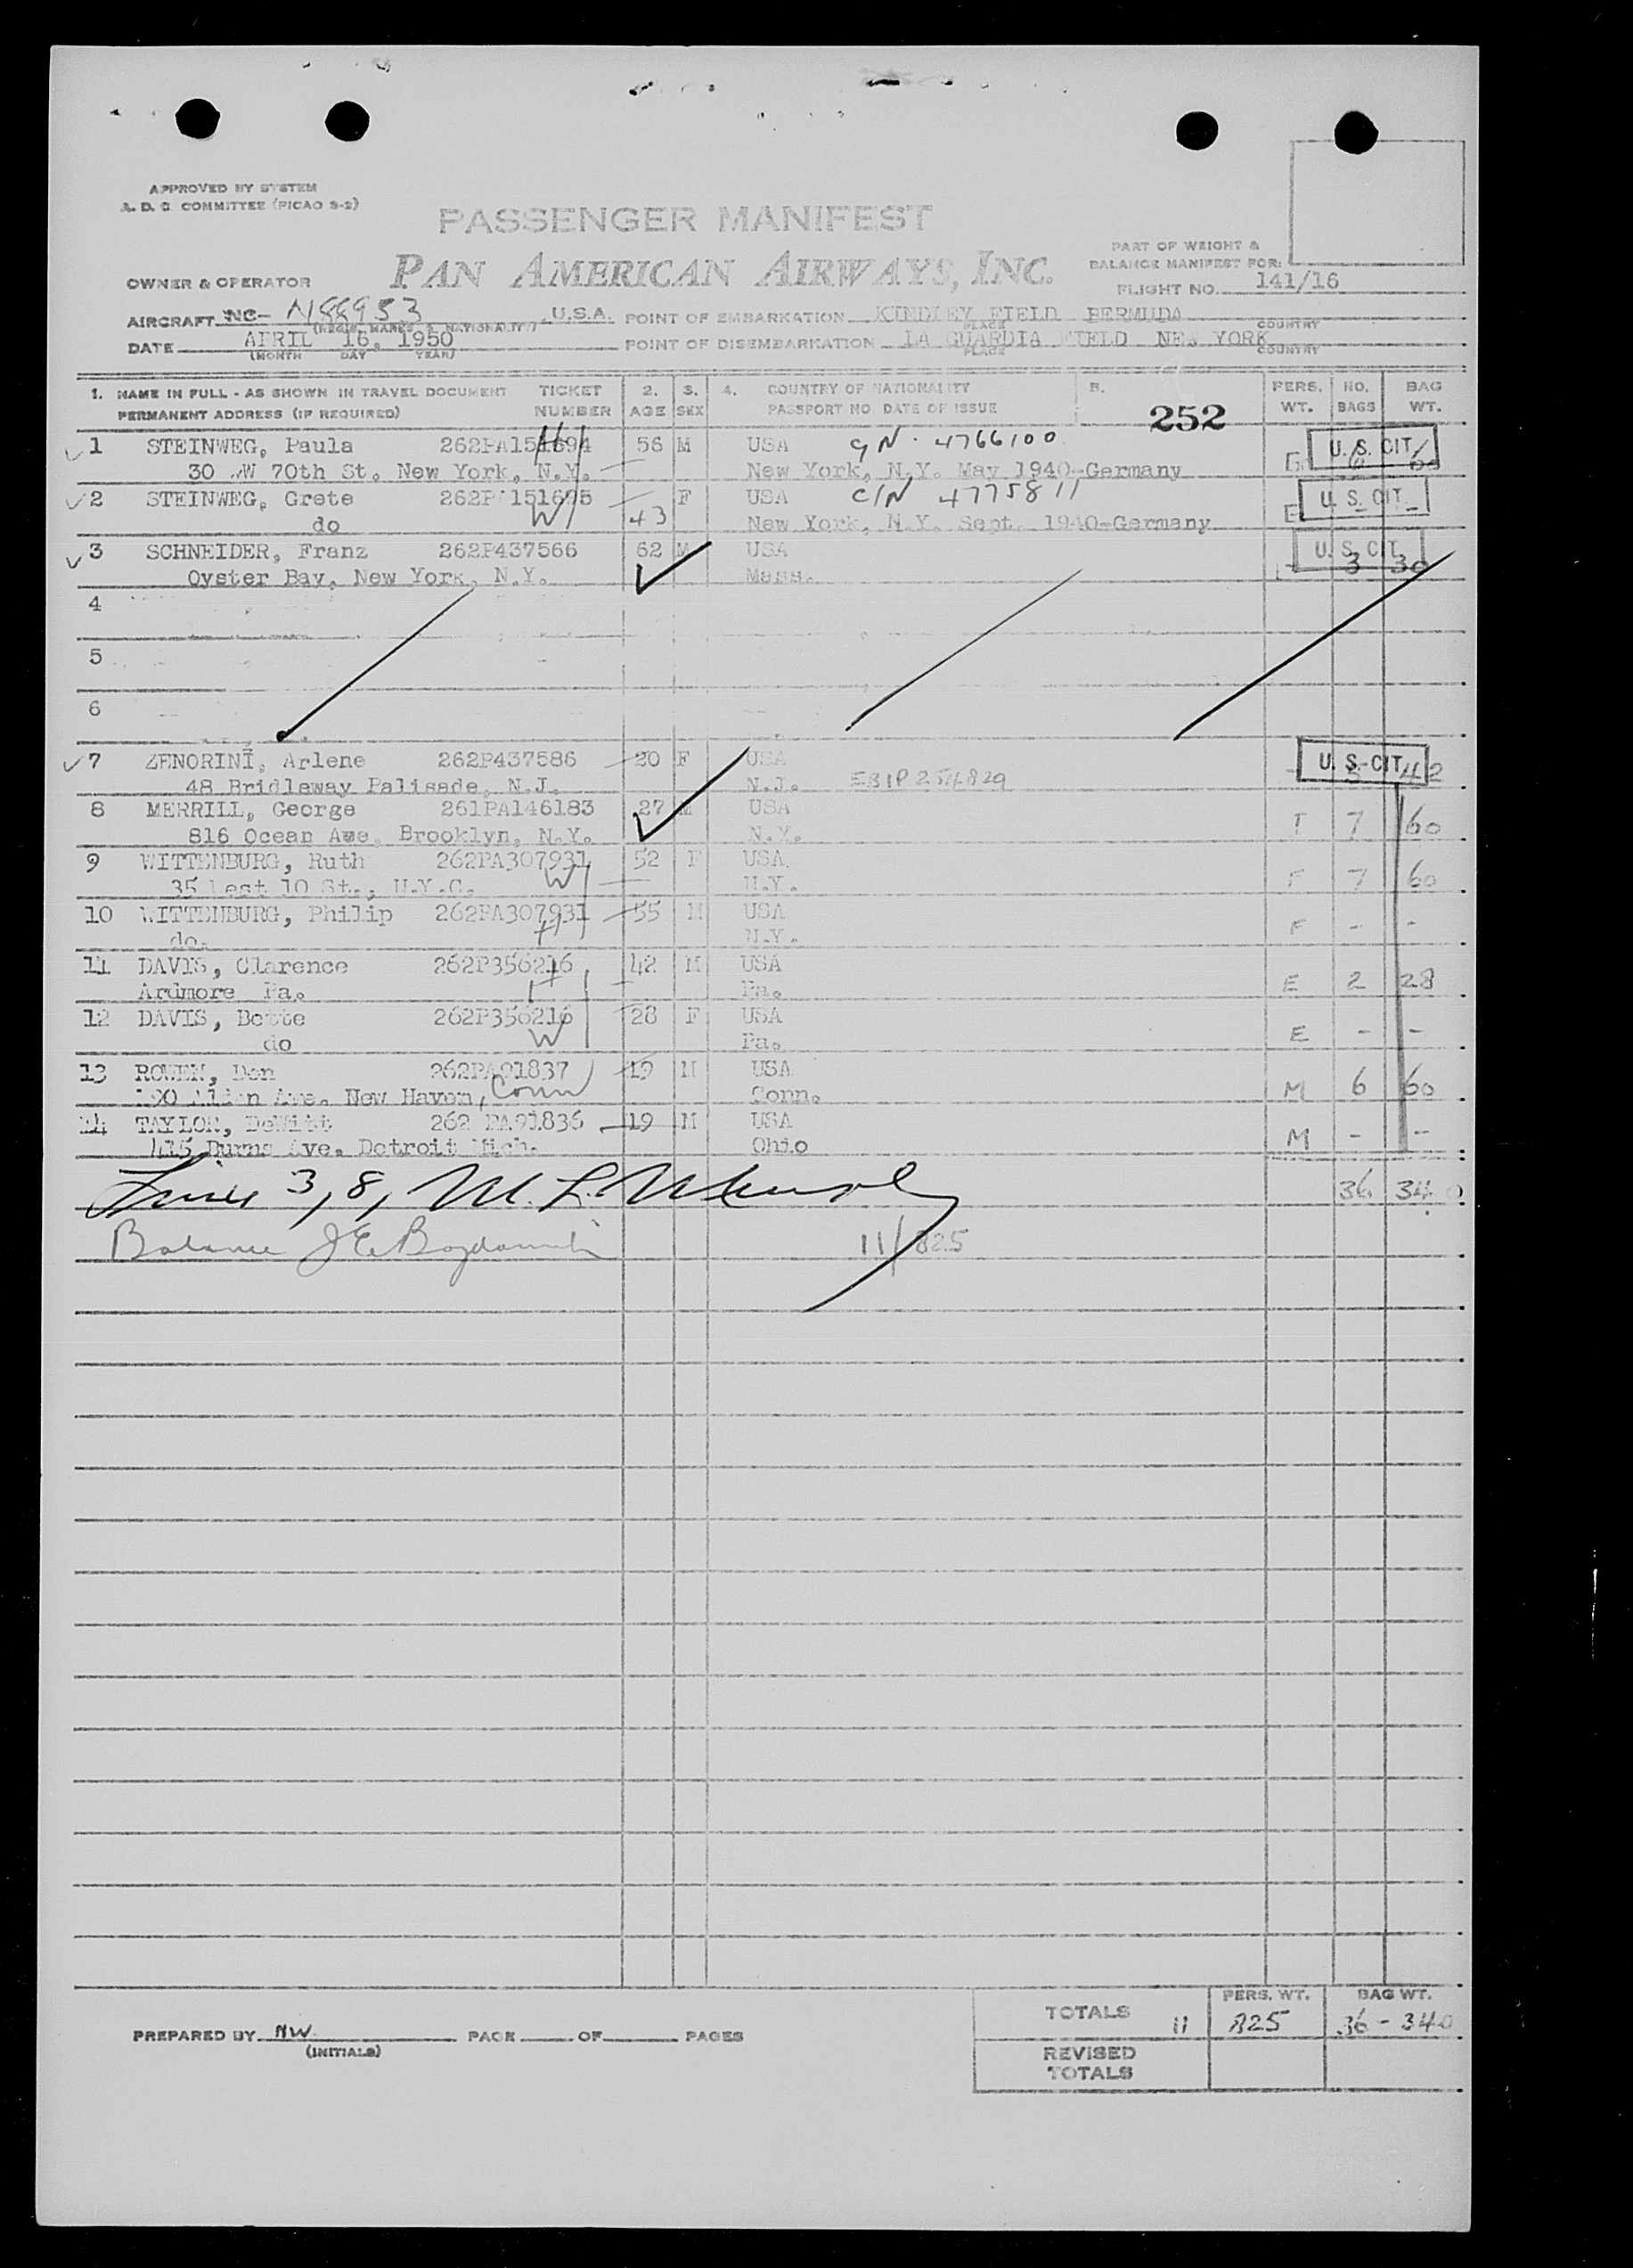 APPROVED BY SYSTEM
A. D. C. COMMITTEE (PICAO S-2)
PASSENGER MANIFEST
PART OF WEIGHT &
BALANCE MANIFEST FOR:
OWNER & OPERATOR PAN AMERICAN AIRWAYS, INC.
FLIGHT NO. 141/16
AIRCRAFT NC- N88953 U.S.A. POINT OF EMBARKATION KINDLEY FIELD BERMUDA
(REGIS. MARKS & NATIONALITY) PLACE COUNTRY
DATE APRIL 16, 1950 POINT OF DISEMBARKATION LA GUARDIA FIELD NEW YORK
(MONTH DAY YEAR) PLACE COUNTRY
1. NAME IN FULL - AS SHOWN IN TRAVEL DOCUMENT TICKET 2. 3. 4. COUNTRY OF NATIONALITY 5. PERS. NO. BAG
PERMANENT ADDRESS (IF REQUIRED) NUMBER AGE SEX PASSPORT NO. DATE OF ISSUE 252 WT. BAGS WT.
1 STEINWEG, Paula 262PA151694 56 M USA 4766100 U. S. CIT.
30 W 70th St. New York, N.Y. New York, N.Y. May 1940-Germany
2 STEINWEG, Grete 151695 43 F USA C/N 4775811 U. S. CIT.
do W New York, N.Y. Sept. 1940-Germany E - -
3 SCHNEIDER, Franz 262P437566 62 M USA U. S. CIT.
Oyster Bay, New York, N.Y. Mass. 3 30
4
5
6
7 ZENORINI, Arlene 262P437586 20 F USA U. S. CIT.
48 Bridleway Palisade, N.J. N.J. 42
8 MERRILL, George 261PA146183 27 M USA
816 Ocean Ave. Brooklyn, N.Y. N.Y. T 7 60
9 WITTENBURG, Ruth 262PA307931 52 F USA
35 East 10 St., N.Y.C. W N.Y. F 7 60
10 WITTENBURG, Philip 262PA307931 55 M USA
do. H N.Y. F - -
11 DAVIS, Clarence 262P356216 42 M USA
Ardmore Pa. H Pa. E 2 28
12 DAVIS, Bette 262P356216 28 F USA
do W Pa. E - -
13 ROWEN, Dan 262PA91837 19 M USA
Ave. New Haven, Conn Conn. M 6 60
14 TAYLOR, DeWitt 262 PA91836 19 M USA
415 Burns Ave. Detroit Mich. Ohio M - -
3, 8, M. L. 36 340
Balance J E 11/825
PREPARED BY NW PAGE OF PAGES
(INITIALS)
PERS. WT. BAG WT.
TOTALS 11 825 36 - 340
REVISED
TOTALS